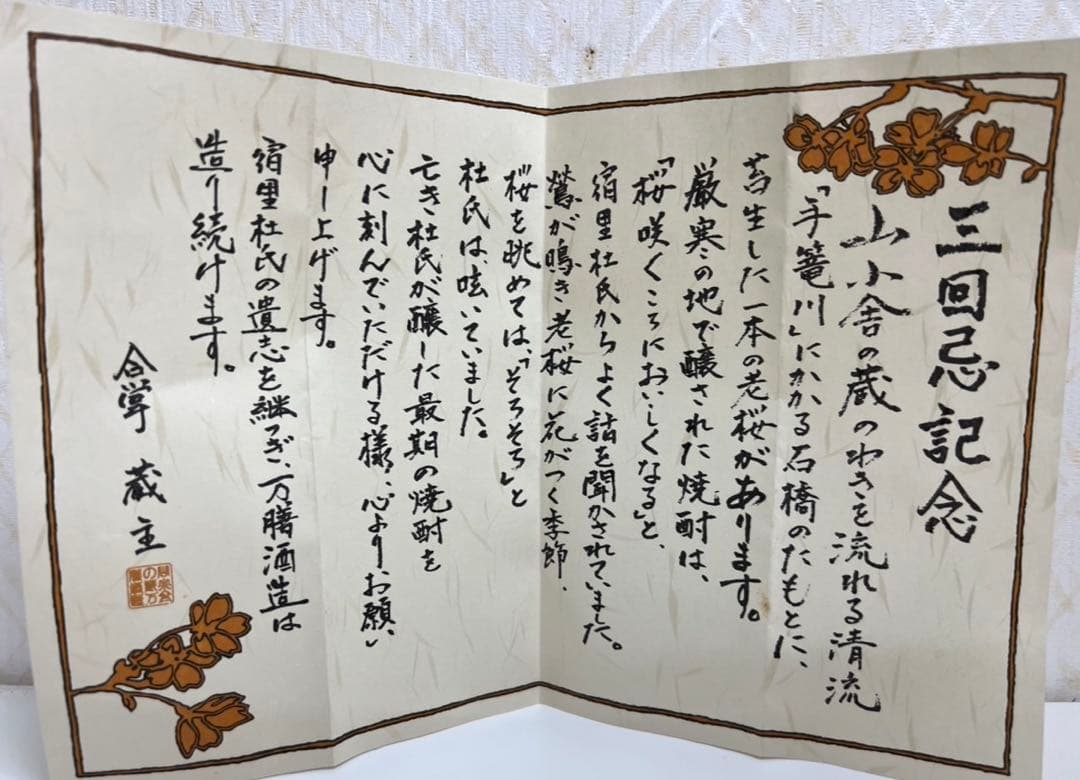 三回忌記念
山小舎の蔵のわきを流れる清流
「手篭川」にかかる石橋のたもとに、
苔生した一本の老桜があります。
厳寒の地で醸された焼酎は、
「桜咲くころにおいしくなる」と、
宿里杜氏からよく話を聞かされていました。
鶯が鳴き老桜に花がつく季節、
桜を眺めては、「そろそろ」と
杜氏は、呟いていました。
亡き杜氏が醸した最期の焼酎を
心に刻んでいただける様、心よりお願い
申し上げます。
宿里杜氏の遺志を継ぎ、万膳酒造は
造り続けます。
合掌 蔵主